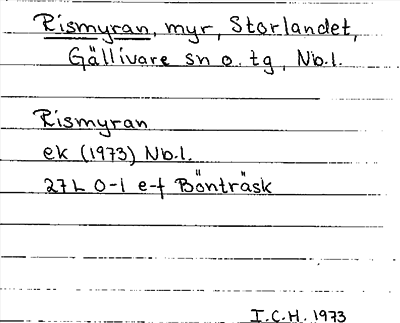 Rismyran, myr, Storlandet,
Gällivare sn o. tg, Nb.l.
Rismyran
ek (1973) Nb.l.
27L 0-1 e-f Bönträsk
I.C.H. 1973